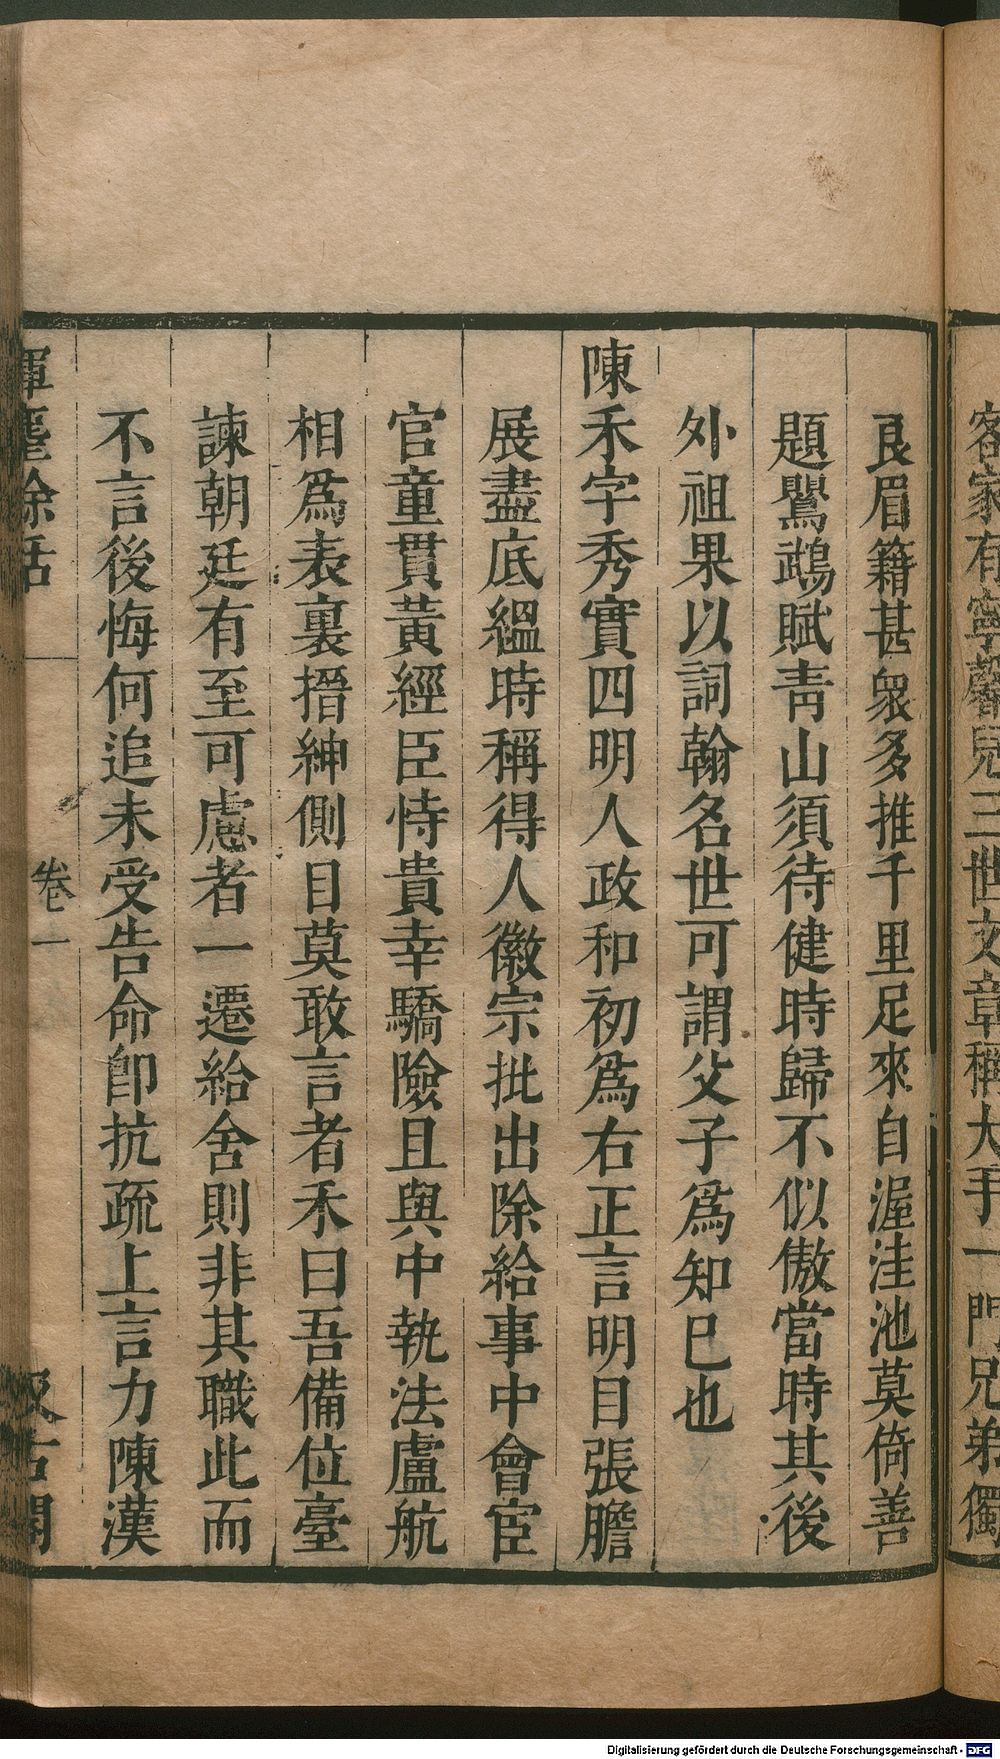 客家有寧馨兒三世文章稱大手一門兄弟獨
良眉籍甚衆多推千里足來自渥洼池莫倚善
題鸎鵡賦青山須待健時歸不似傲當時其後
外祖果以詞翰名世可謂父子爲知巳也
陳禾字秀實四明人政和初爲右正言明目張膽
展盡底緼時稱得人徽宗批出除給事中會宦
官童貫黃經臣恃貴幸驕險且與中執法盧航
相爲表裏搢紳側目莫敢言者禾曰吾備位臺
諫朝廷有至可慮者一遷給舍則非其職此而
不言後悔何追未受告命卽抗疏上言力陳漢
揮麈餘話
卷一
汲古閣
Digitalisierung gefördert durch die Deutsche Forschungsgemeinschaft - DFG